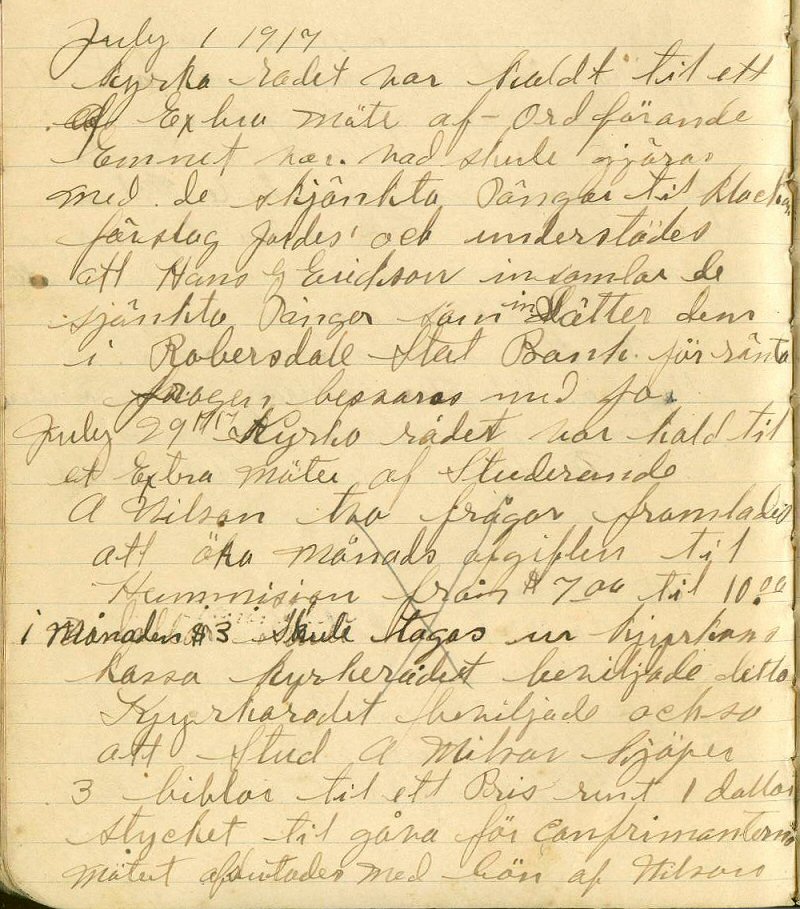 July 1 1917
kyrko radet var kaldt til ett
Extra möte af Ordförande
Emnet var. vad skule gjöras
med de skjänkta Pängar til klockan
förslag jordes och understödes
att Hans G Erickson insamlar de
sjänkta Pängar som in sätter dem
i Robersdale Stat Bank. för ränta
frogen besvaras med jo.
July 29 1917 Kyrko rådet var kald til
et Extra möte af Studerande
A Nilson tvo frågor framlades
att öka månads afgiften til
Hemmision från $ 7.00 til 10.00
i månaden $3 skule tagas ur kjyrkans
kassa kyrkerådet beviljade detta
Kjyrkoradet beviljade ockso
att Stud A Nilson kjöper
3 biblar til ett Pris runt 1 dollar
stycket til gåva för Confrimanterna
mötet afslutades med bön af Nilson